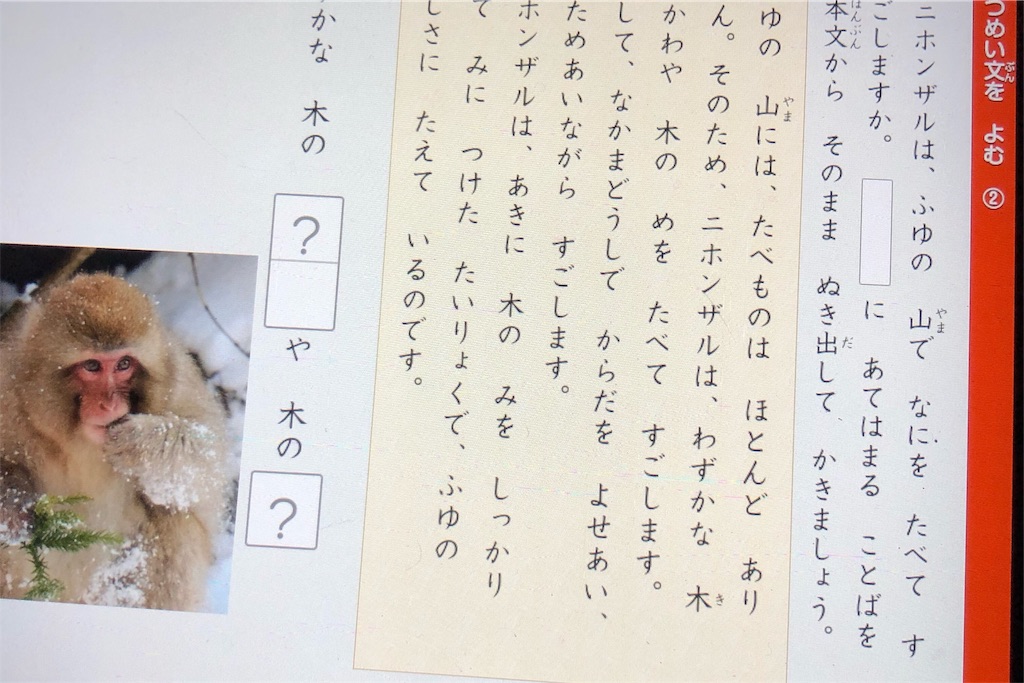 つめい文を よむ ②
ニホンザルは、ふゆの 山で なにを たべて す
ごしますか。 に あてはまる ことばを
本文から そのまま ぬき出して、かきましょう。
ゆの 山には、たべものは ほとんど あり
ん。そのため、ニホンザルは、わずかな 木
かわや 木の めを たべて すごします。
して、なかまどうしで からだを よせあい、
ためあいながら すごします。
ホンザルは、あきに 木の みを しっかり
て みに つけた たいりょくで、ふゆの
しさに たえて いるのです。
かな 木の
? や 木の ?